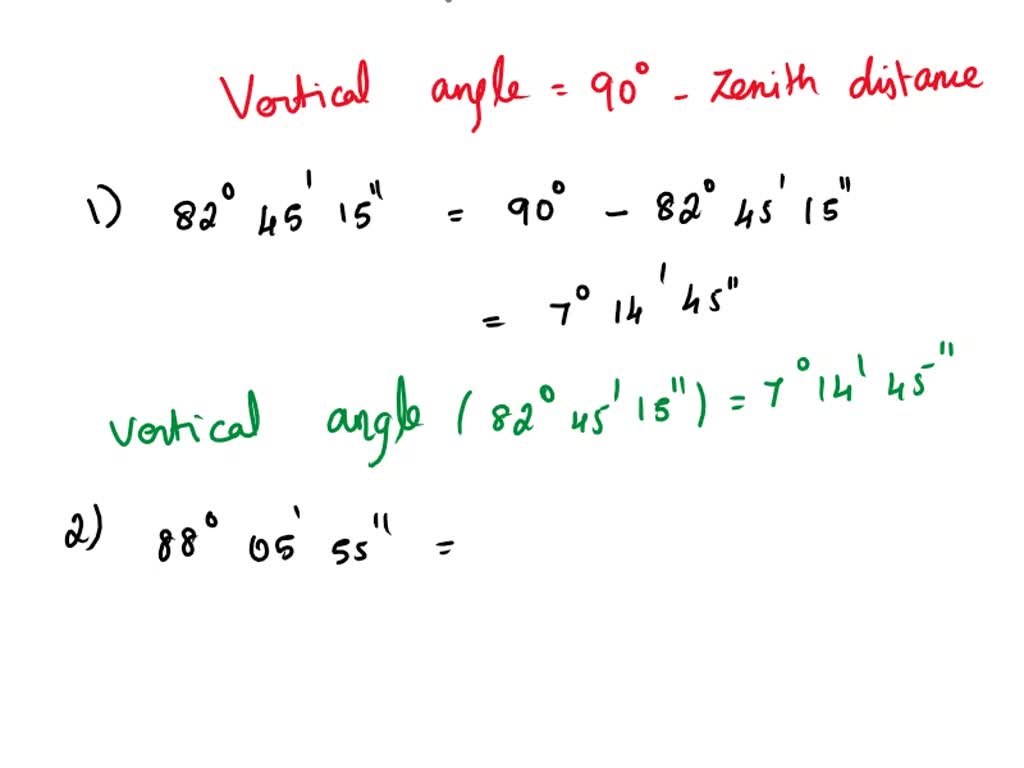 Vertical angle = 90° - Zenith distance
1) 82° 45' 15" = 90° - 82° 45' 15"
= 7° 14' 45"
Vertical angle (82° 45' 15") = 7° 14' 45"
2) 88° 05' 55" =